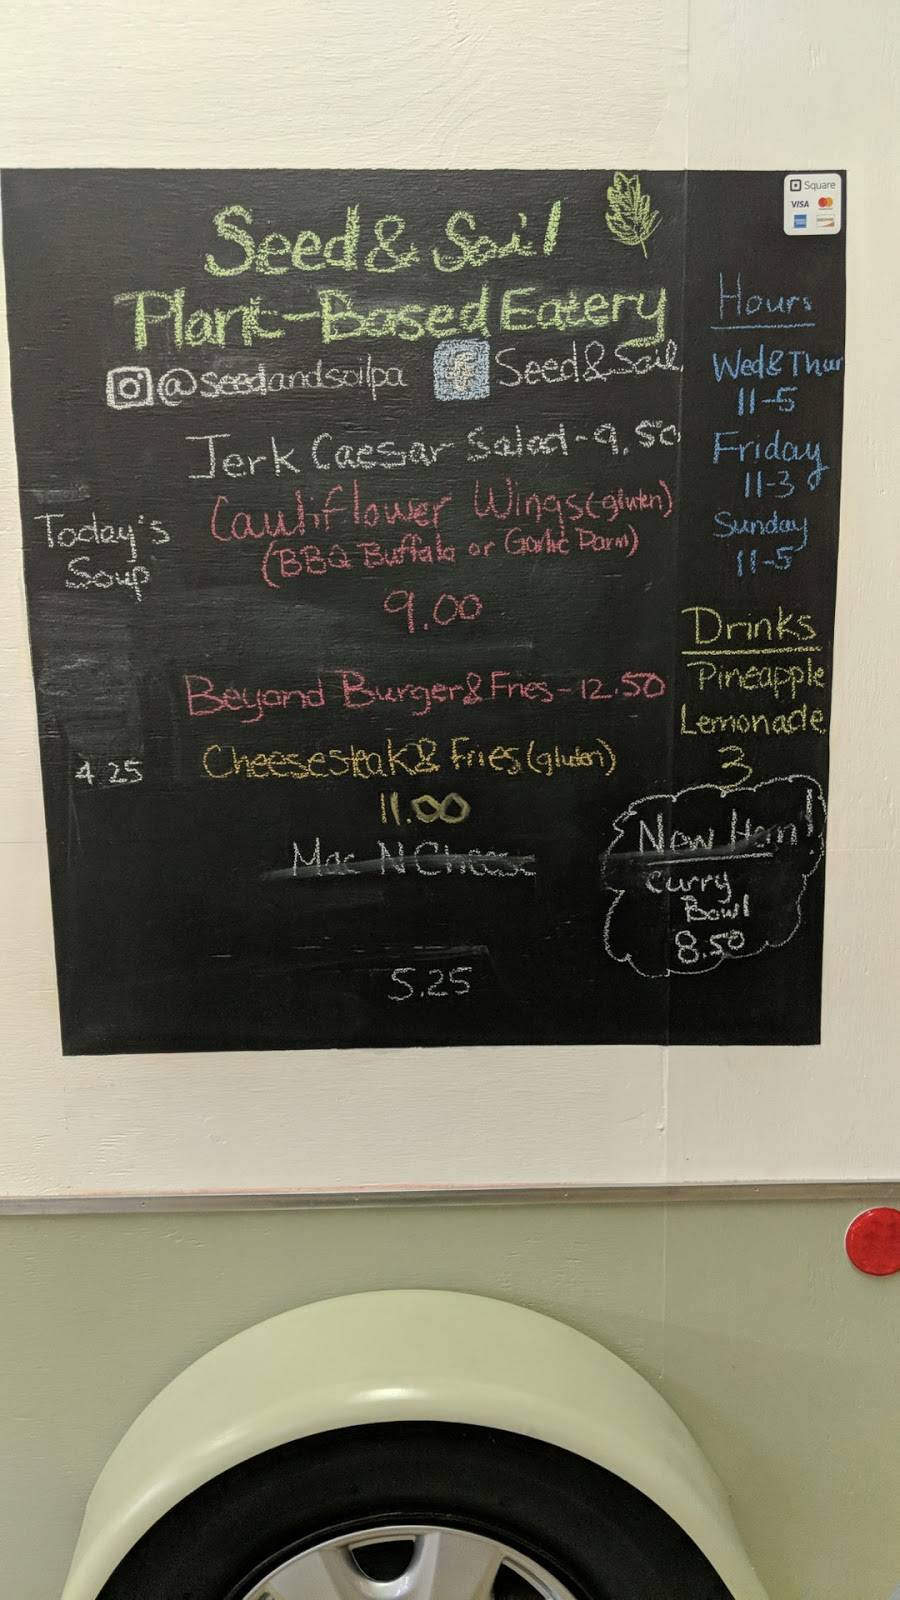 Seed & Soil
Plant-Based Eatery
@seedandsoilpa f Seed&Soil
Jerk Caesar Salad-9.50
Cauliflower Wings(gluten)
(BBQ Buffalo or Garlic Parm)
9.00
Beyond Burger & Fries-12.50
Cheesesteak & Fries (gluten)
11.00
Mac N Cheese
5.25
Today's
Soup
4.25
Square
VISA
Hours
Wed & Thur
11-5
Friday
11-3
Sunday
11-5
Drinks
Pineapple
Lemonade
3
New Item!
Curry
Bowl
8.50